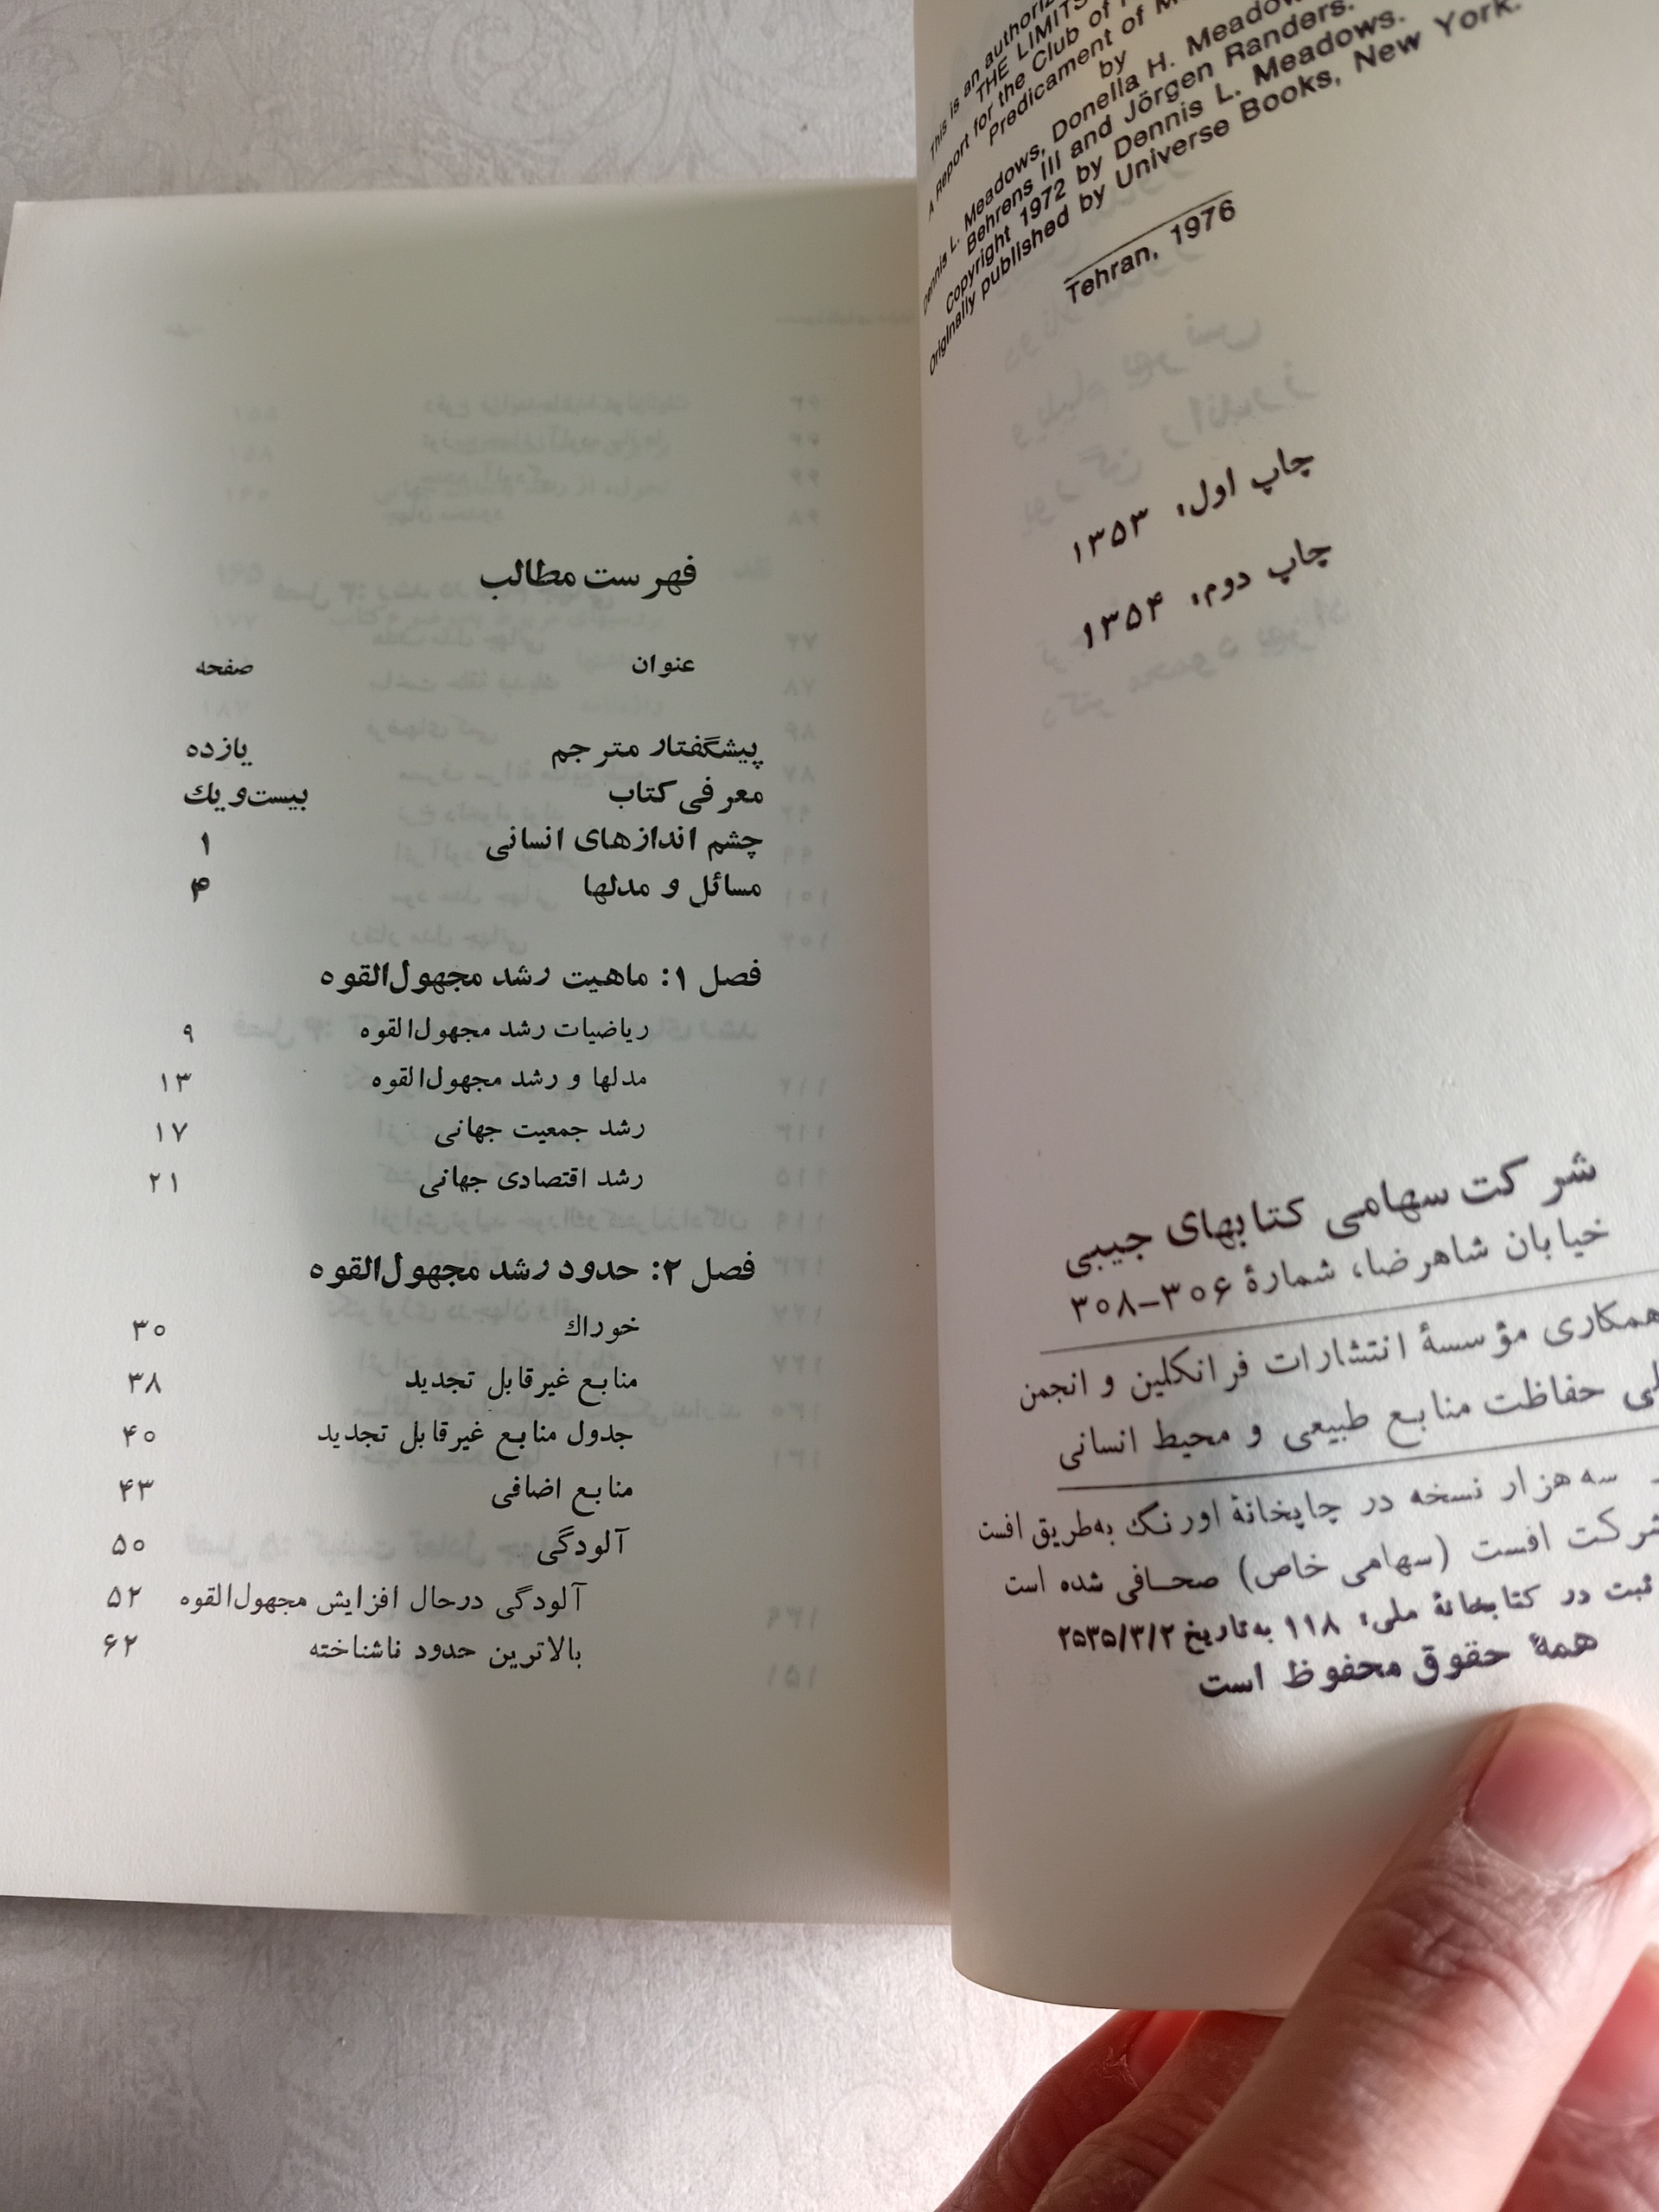 This is an authoriz
THE LIMITS
A Report for the Club of
Predicament of M
by
Dennis L. Meadows, Donella H. Meadow
Behrens III and Jörgen Randers.
Copyright 1972 by Dennis L. Meadows.
Originally published by Universe Books, New York.
Tehran, 1976
چاپ اول: ۱۳۵۳
چاپ دوم: ۱۳۵۴
شرکت سهامی کتابهای جیبی
خیابان شاهرضا، شمارهٔ ۳۰۶–۳۰۸
همکاری مؤسسهٔ انتشارات فرانکلین و انجمن
حفاظت منابع طبیعی و محیط انسانی
سه هزار نسخه در چاپخانهٔ اورنگ به‌طریق افست
شرکت افست (سهامی خاص) صحافی شده است
ثبت در کتابخانهٔ ملی: ۱۱۸ به‌تاریخ ۲۵۳۵/۳/۲
همهٔ حقوق محفوظ است
فهرست مطالب
عنوان صفحه
پیشگفتار مترجم یازده
معرفی کتاب بیست‌ویك
چشم اندازهای انسانی ۱
مسائل و مدلها ۴
فصل ۱: ماهیت رشد مجهول‌القوه
ریاضیات رشد مجهول‌القوه ۹
مدلها و رشد مجهول‌القوه ۱۳
رشد جمعیت جهانی ۱۷
رشد اقتصادی جهانی ۲۱
فصل ۲: حدود رشد مجهول‌القوه
خوراك ۳۰
منابع غیرقابل تجدید ۳۸
جدول منابع غیرقابل تجدید ۴۰
منابع اضافی ۴۳
آلودگی ۵۰
آلودگی درحال افزایش مجهول‌القوه ۵۲
بالاترین حدود ناشناخته ۶۲